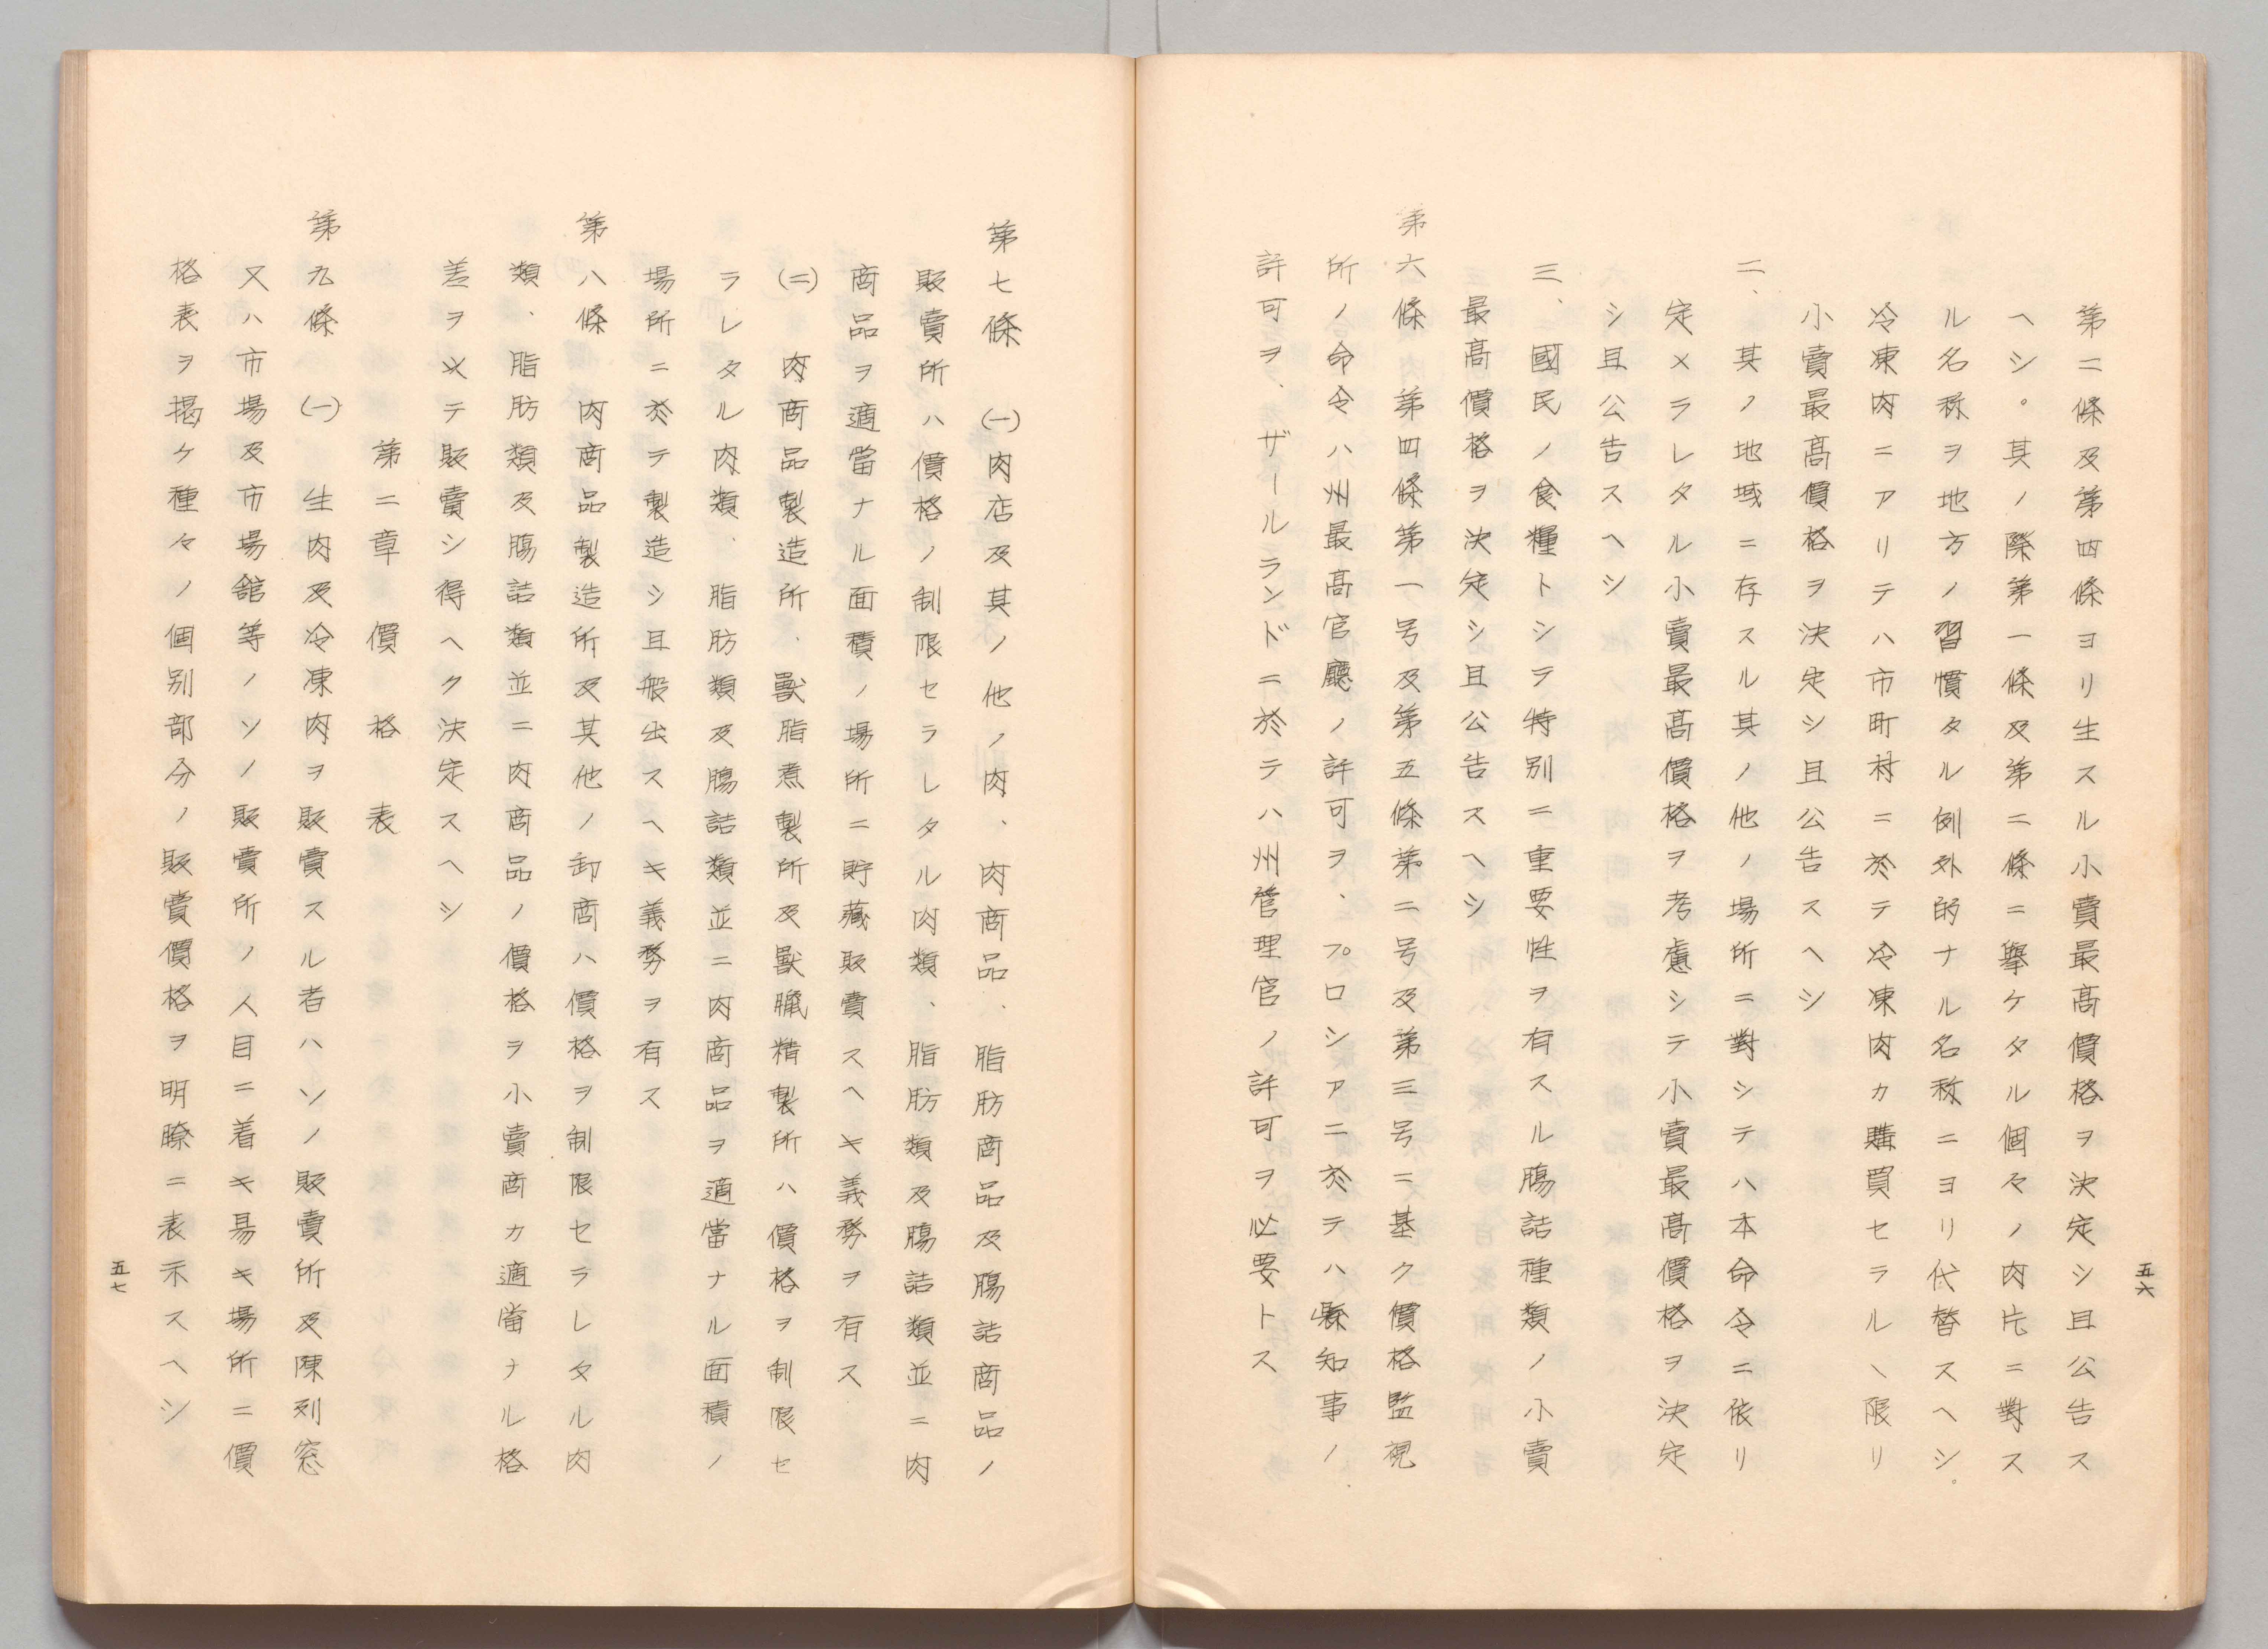 五六
第二條及第四條ヨリ生スル小賣最高價格ヲ決定シ且公告ス
ヘシ。其ノ際第一條及第二條ニ擧ケタル個々ノ肉片ニ對ス
ル名称ヲ地方ノ習慣タル例外的ナル名称ニヨリ代替スヘシ。
冷凍肉ニアリテハ市町村ニ於テ冷凍肉カ購買セラルヽ限リ
小賣最高價格ヲ決定シ且公告スヘシ
二、其ノ地域ニ存スル其ノ他ノ場所ニ對シテハ本命令ニ依リ
定メラレタル小賣最高價格ヲ考慮シテ小賣最高價格ヲ決定
シ且公告スヘシ
三、國民ノ食糧トシテ特別ニ重要性ヲ有スル膓詰種類ノ小賣
最高價格ヲ決定シ且公告スヘシ
第六條 第四條第一号及第五條第二号及第三号ニ基ク價格監視
所ノ命令ハ州最高官廳ノ許可ヲ、プロシアニ於テハ縣知事ノ
許可ヲ、ザールランドニ於テハ州管理官ノ許可ヲ必要トス
第七條 (一)肉店及其ノ他ノ肉、肉商品、脂肪商品及膓詰商品ノ
販賣所ハ價格ノ制限セラレタル肉類、脂肪類及膓詰類並ニ肉
商品ヲ適當ナル面積ノ場所ニ貯藏販賣スヘキ義務ヲ有ス
(二)肉商品製造所、獸脂煮製所及獸臘精製所ハ價格ヲ制限セ
ラレタル肉類、脂肪類及膓詰類並ニ肉商品ヲ適當ナル面積ノ
場所ニ於テ製造シ且般出スヘキ義務ヲ有ス
第八條 肉商品製造所及其他ノ卸商ハ價格ヲ制限セラレタル肉
類、脂肪類及膓詰類並ニ肉商品ノ價格ヲ小賣商カ適當ナル格
差ヲ以テ販賣シ得ヘク決定スヘシ
第二章 價格ノ表
第九條 (一) 生肉及冷凍肉ヲ販賣スル者ハソノ販賣所及陳列窓
又ハ市場及市場舘等ノソノ販賣所ノ人目ニ着キ易キ場所ニ價
格表ヲ揭ケ種々ノ個別部分ノ販賣價格ヲ明瞭ニ表示スヘシ
五七